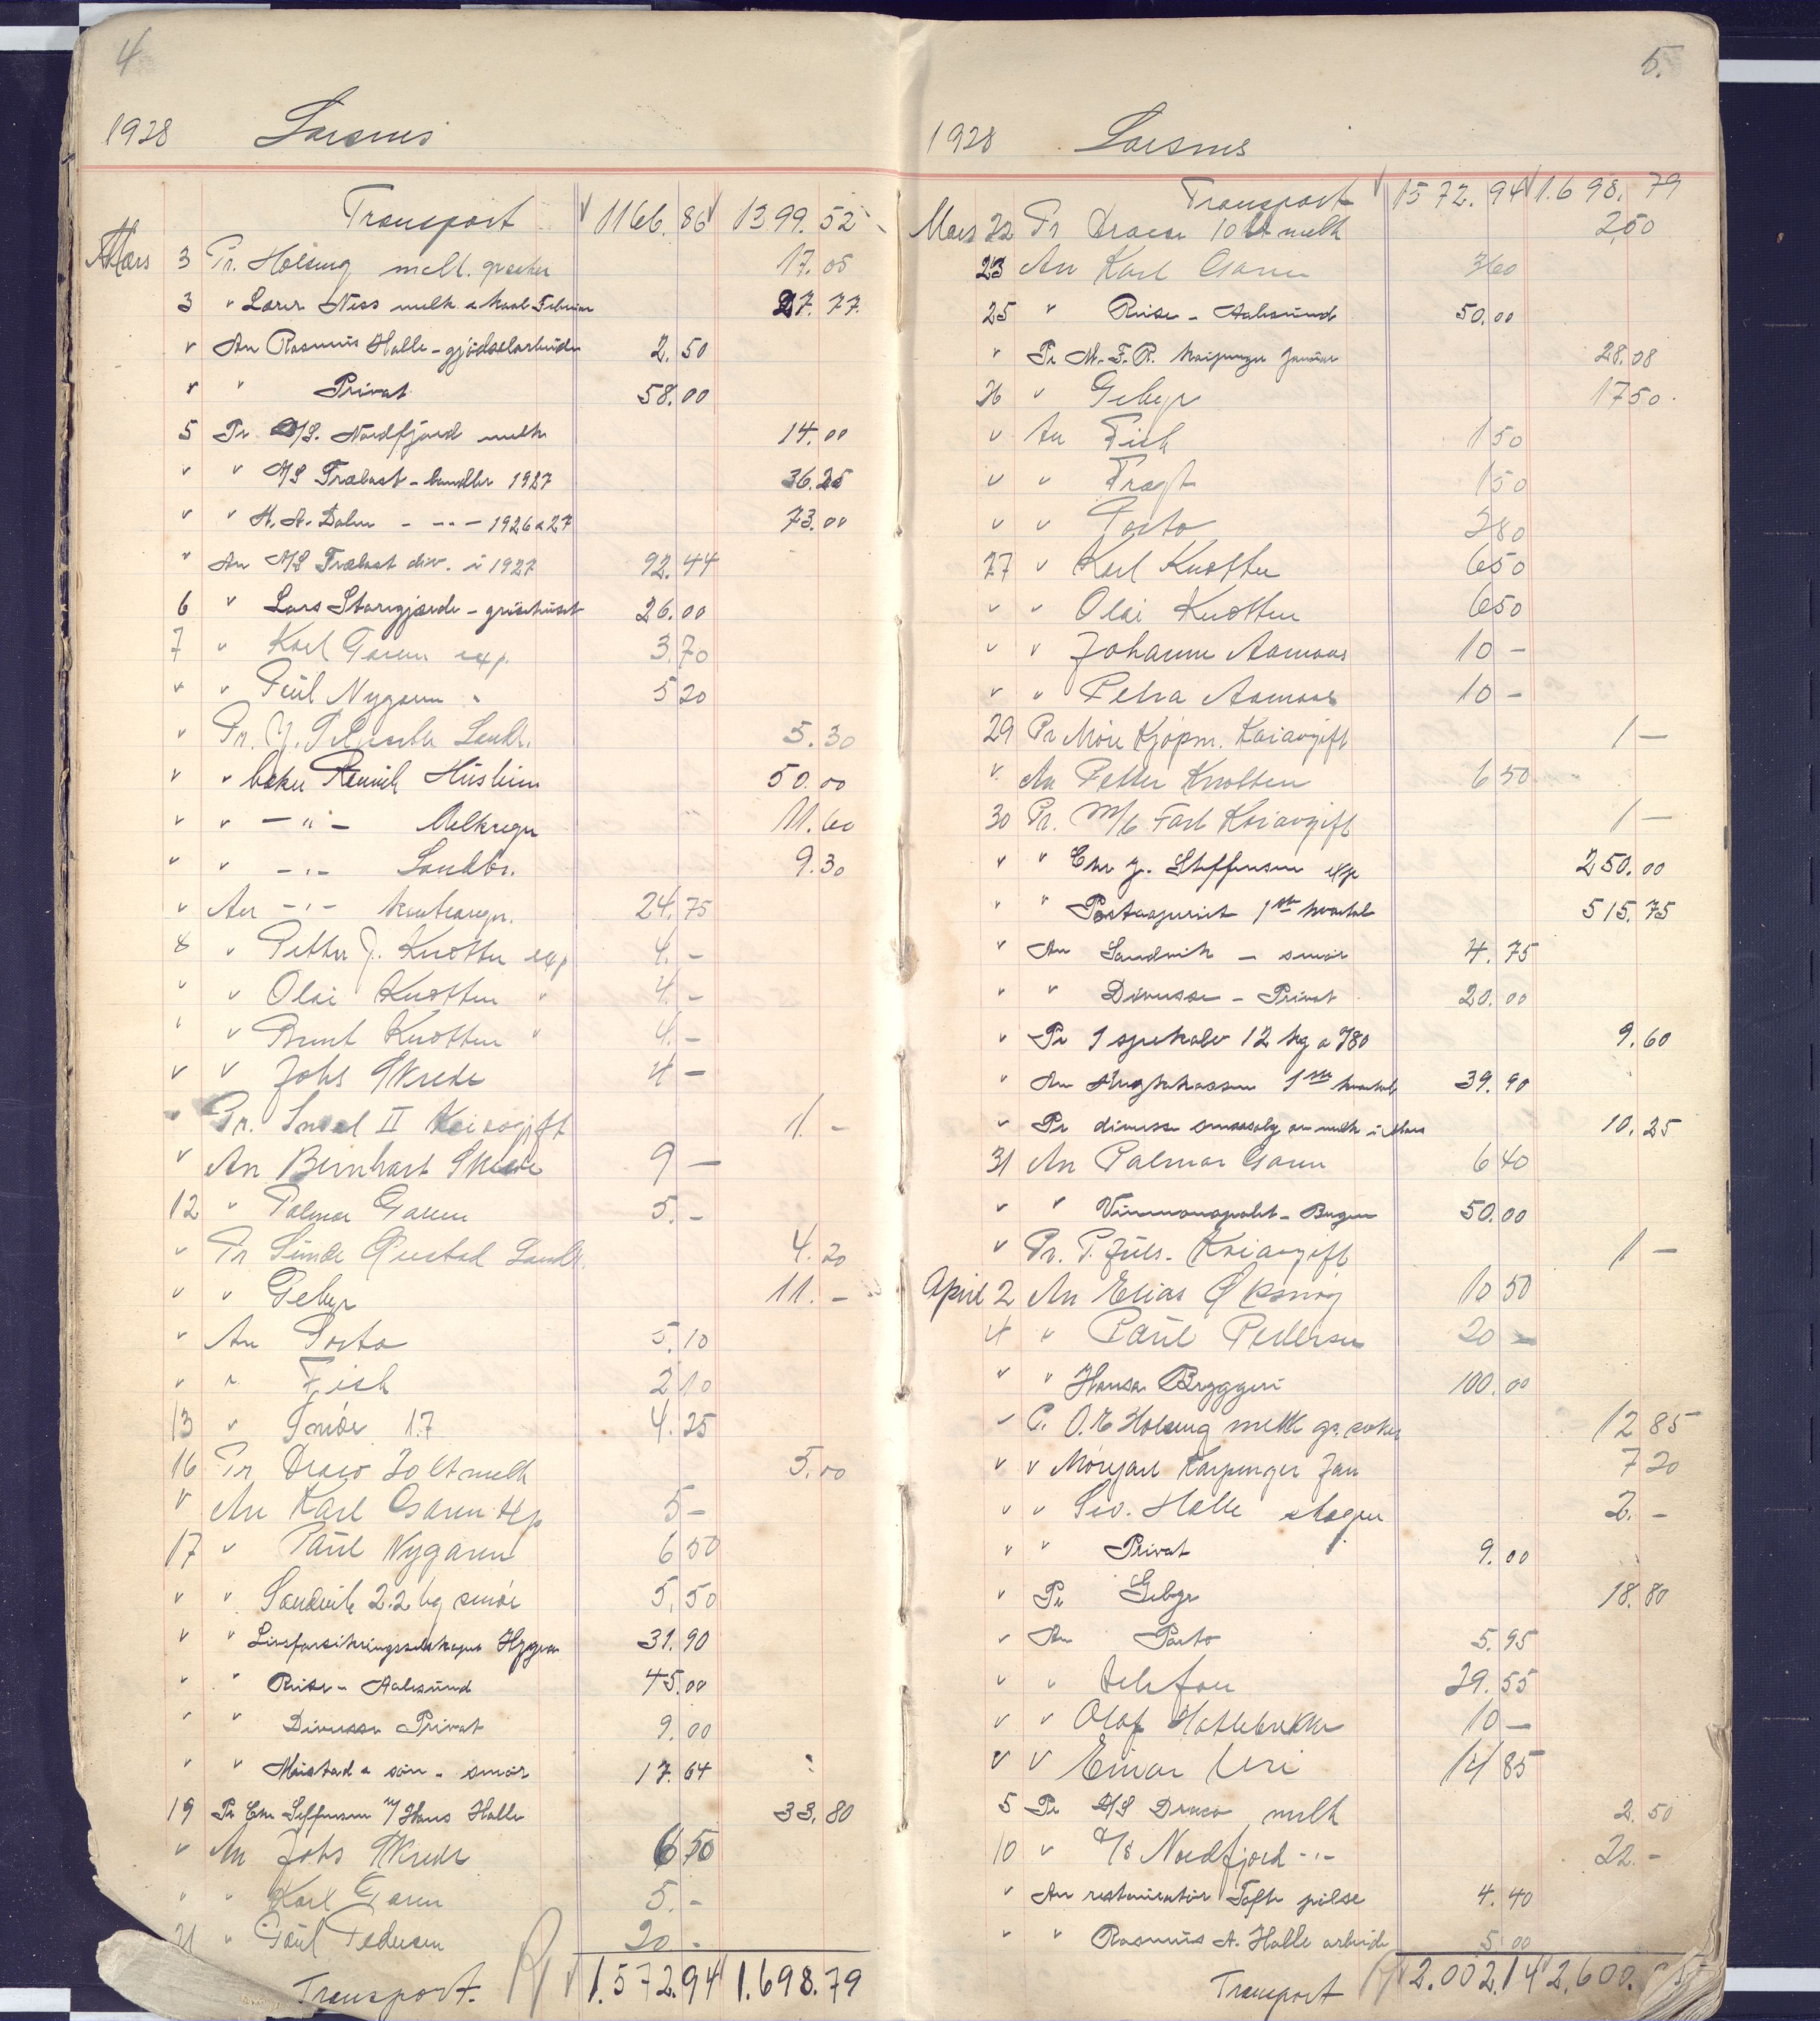 4
1928
Transport 1166.86 1399.52
Mars 3 Pr. Holsung melk. 17.05
3 " Lærer Ness melk a kaal Februar 27.77
" An Rasmus Halle - gjødselarbeide 2.50
" " Privat 58.00
5 Pr A/S. Nordfjord melk 14.00
" " A/S Trælast - 1927 36.25
" " 1926 a 27 73.00
" An A/S Trælast div. i 1927 92.44
6 " Lars Storegjærde - grisehuset 26.00
7 " Karl Garen exp. 3.70
" " Paul Nygaren " 5 20
" Pr. 5.30
" " Husleien 50.00
" " - " - Melkregn 11.60
" " - " - 9.30
" An - " - 24.75
8 " Petter J. Knotten exp 4.-
" " Olai Knotten " 4.-
" " Bernt Knotten " 4.-
" " Johs Skrede 4 -
" Pr. II Kaiavgift 1.-
" An Bernhart 9 -
12 " Palmar Garen 5.-
" Pr Sunde 4.20
" " Gebyr 11.-
" An Porto 5.10
" " Fisk 2 10
13 " Smør 1.7 4.25
16 Pr Draco 20 lt melk 5.00
" An Karl Garen exp 5 -
17 " Paul Nygaren 6 50
" " Sandvik 2.2 kg smør 5,50
" " Livsforsikringsselskapet Hygea 31.90
" " Reise - Aalesund 45.00
" " Diverse Privat 9.00
" " a søn - smør 17.64
19 Pr Chr Steffensen v/ Hans Halle 33.80
" An Johs Skrede 6 50
" " Karl Garen 5.-
21 " Paul Pedersen 20 -
Transport. 1.572.94 1.698.79
5.
1928
Transport 1572.94 1.698.79
Mars 22 Pr Draco 10 lt melk 2,50
23 An Karl Garen 3 60
25 " Reise - Aalesund 50.00
" Pr M.F.R. Januar 28.08
26 " Gebyr 17 50
" An Fisk 1 50
" " Fragt 1 50
" " Porto 2 80
27 " Karl Knotten 6 50
" " Olai Knotten 6 50
" " Johanne Aamaas 10 -
" " Petra Aamaas 10 -
29 Pr Møre Kjøpm. Kaiavgift 1 -
" An Petter Knotten 6 50
30 Pr. M/k Fart Kaiavgift 1 -
" " Chr J. Steffensen exp 250.00
" " Postaapneriet 1ste kvartal 515.75
" An Sandvik - smør 4.75
" " Diverse - Privat 20.00
" Pr 1 spekalv 12 kg a 780 9.60
" An 1ste kvartal 39.90
" Pr diverse smaasalg av melk i Mars 10.25
31 An Palmar Garen 6 40
" " Vinmonopolet - Bergen 50.00
" Pr. P. Juls. Kaiavgift 1 -
April 2 An Elias Øksnøy 10 50
4 " Paul Pedersen 20 -
" " Hansa Bryggeri 100.00
" P. O.E Holsung melk 12 85
" " Jan 7 20
" " Halle 2.-
" " Privat 9.00
" Pr Gebyr 18.80
" An Porto 5.95
" " Telefon 29.55
" " Olaf Hatlebrekke 10 -
" " Einar Uri 14 85
5 Pr A/S Draco melk 2.50
10 " A/S Nordfjord - " - 22.-
" An restauratør Tofte pølse 4.40
" " Rasmus A. Halle arbeide 5.00
Transport 2.002.14 2.600.